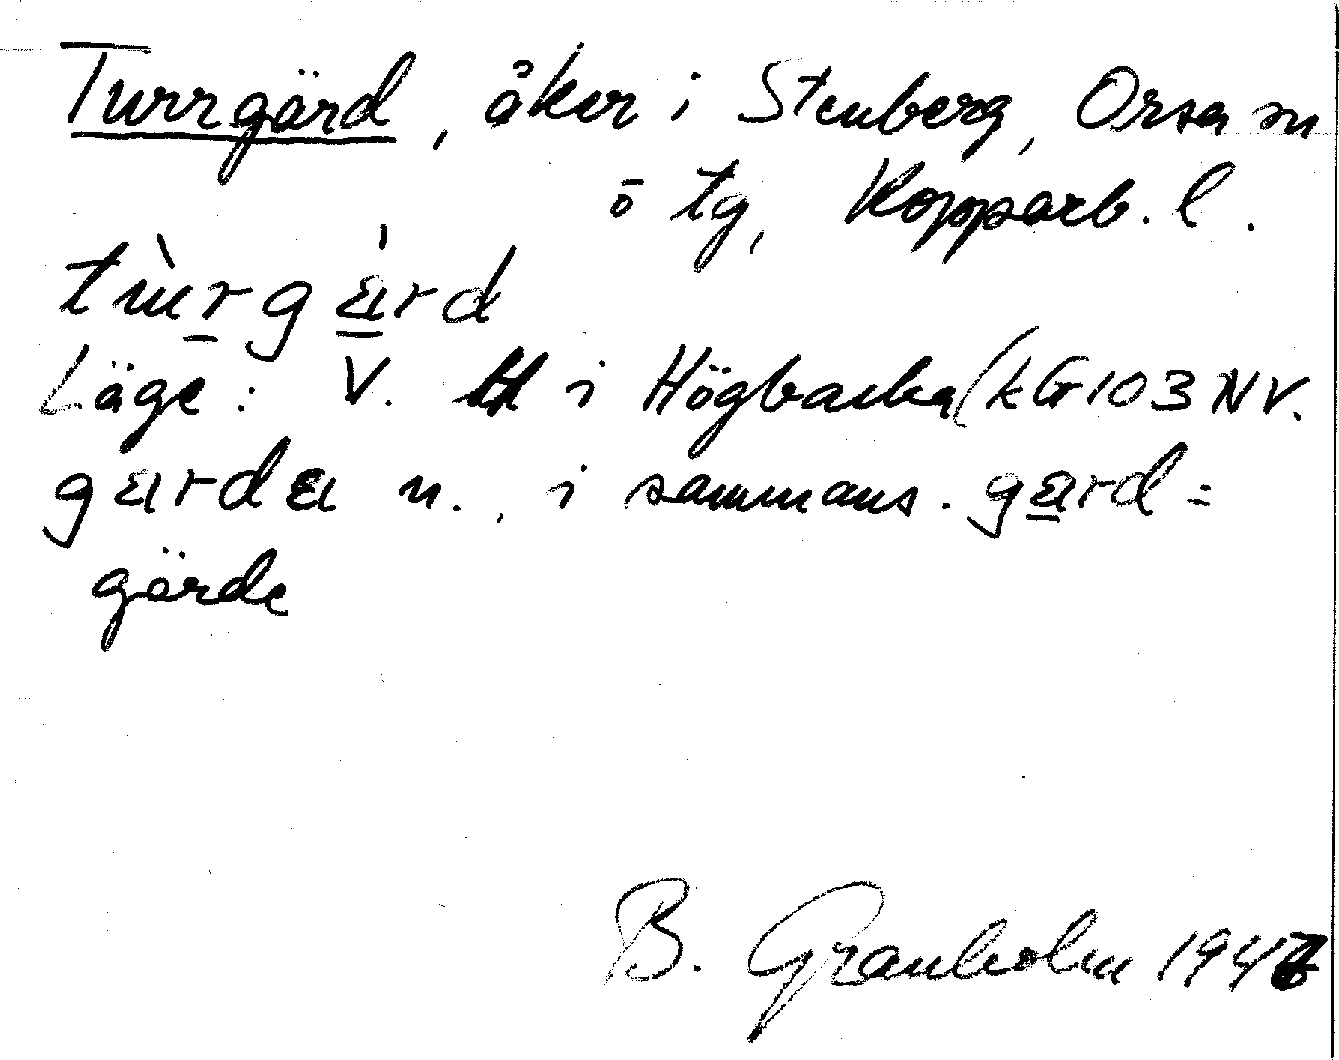 Turrgärd, åker i Stenberg, Orsa sn
ö tg, Kopparb. l.
tùrgàrd
Läge: V. i Högbacka (kG103NV.
garda n., i sammans. gard =
gärde
B. Granholm 194